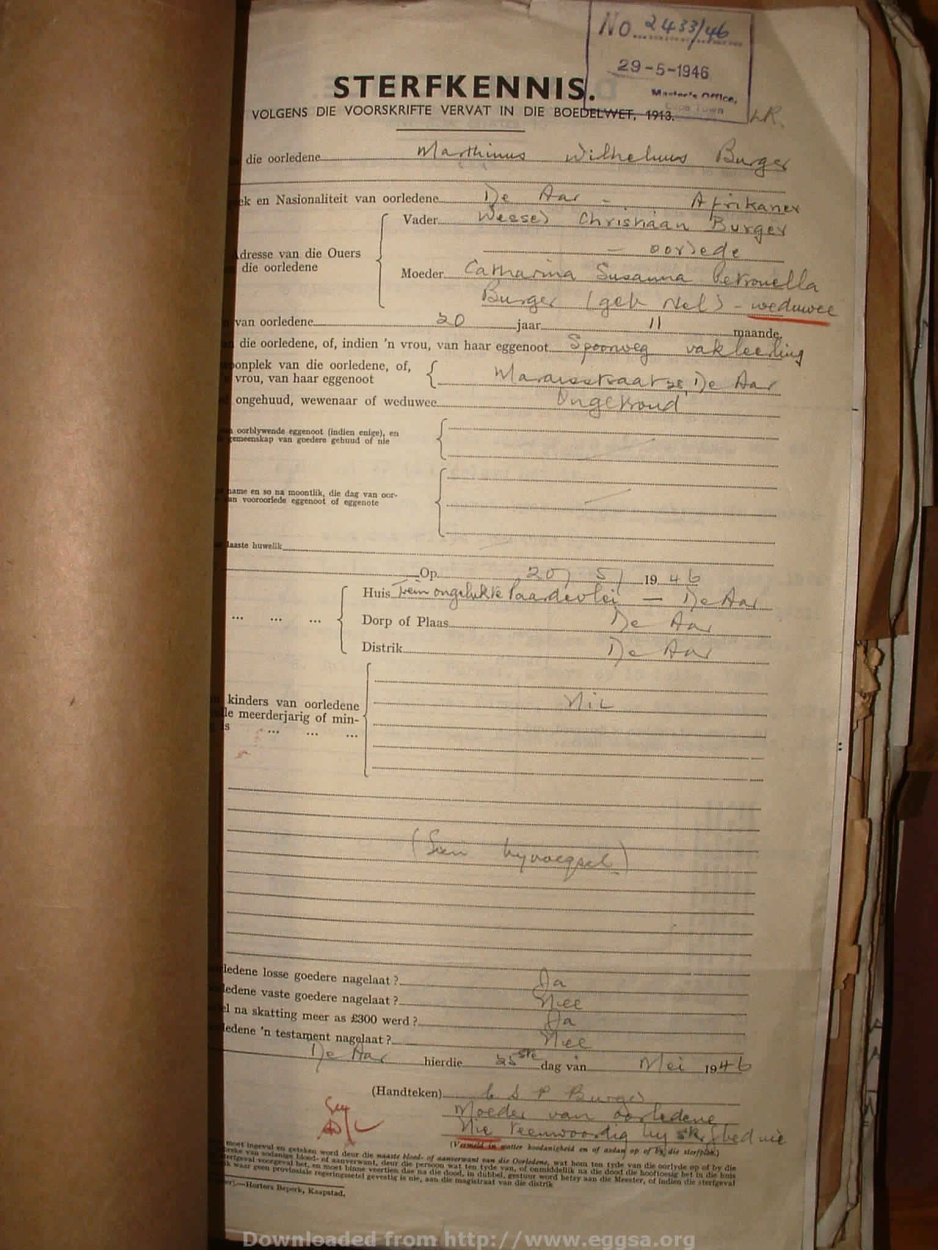 No. 2433/46
29-5-1946
Master's Office,
Cape Town
STERFKENNIS.
VOLGENS DIE VOORSKRIFTE VERVAT IN DIE BOEDELWET, 1913.
die oorledene Marthinus Wilhelmus Burger
ek en Nasionaliteit van oorledene De Aar - Afrikaner
Vader Wessel Christiaan Burger
- oorlede
dresse van die Ouers
die oorledene
Moeder Catharina Susanna Petronella
Burger (geb Nel) - weduwee
van oorledene 20 jaar 11 maande
die oorledene, of, indien 'n vrou, van haar eggenoot Spoorweg vakleerling
oonplek van die oorledene, of,
vrou, van haar eggenoot
Maraisstraat De Aar
ongehuud, wewenaar of weduwee Ongetroud
oorblywende eggenoot (indien enige), en
gemeenskap van goedere gehuud of nie
name en so na moontlik, die dag van oor-
an vooroorlede eggenoot of eggenote
laaste huwelik
Op 20/5/1946
Huis Trein ongelukke Paardevlei - De Aar
Dorp of Plaas De Aar
Distrik De Aar
kinders van oorledene
le meerderjarig of min-
is
Nil
(Sien byvoegsel)
ledene losse goedere nagelaat? Ja
ledene vaste goedere nagelaat? Nee
el na skatting meer as £300 werd? Ja
ledene 'n testament nagelaat? Nee
De Aar hierdie 25ste dag van Mei 1946
(Handteken) C S P Burger
Moeder van oorledene
Nie teenwoordig by sterfbed nie
(Vermeld in watter hoedanigheid en of aodan op of by die sterfplek)
moet ingevul en geteken word deur die naaste bloed- of aanverwant van die Oorledene, wat ten tyde van die oorlyde op of by die
waar geen provinsiale regeringsetel gevestig is nie, aan die magistraat van die distrik
Horters Beperk, Kaapstad.
Downloaded from http://www.eggsa.org